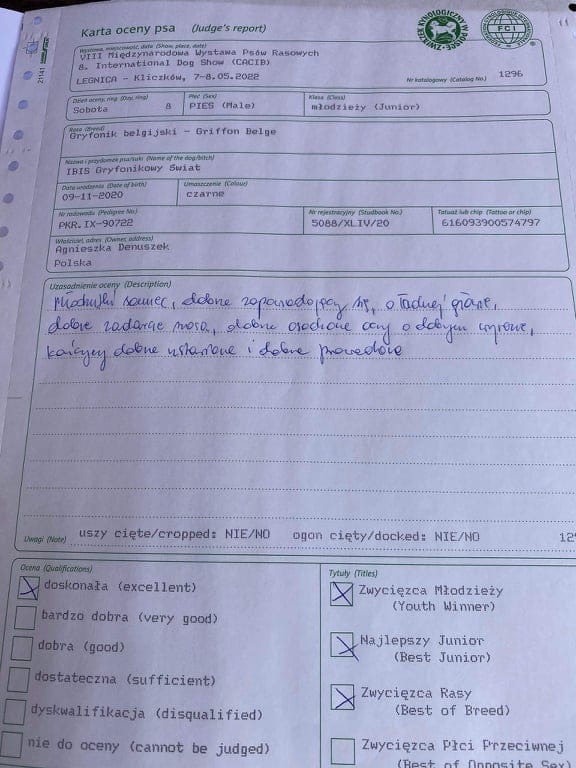 Karta oceny psa (Judge's report)
ZWIĄZEK KYNOLOGICZNY W POLSCE
FCI
21141
Wystawa, miejscowość, data (Show, place, date)
VIII Międzynarodowa Wystawa Psów Rasowych
8. International Dog Show (CACIB)
LEGNICA - Kliczków, 7-8.05.2022
Nr katalogowy (Catalog No.) 1296
Dzień oceny, ring (Day, ring)
Sobota 8
Płeć (Sex)
PIES (Male)
Klasa (Class)
młodzieży (Junior)
Rasa (Breed)
Gryfonik belgijski - Griffon Belge
Nazwa i przydomek psa/suki (Name of the dog/bitch)
IBIS Gryfonikowy Świat
Data urodzenia (Date of birth)
09-11-2020
Umaszczenie (Colour)
czarne
Nr rodowodu (Pedigree No.)
PKR.IX-90722
Nr rejestracyjny (Studbook No.)
5088/XLIV/20
Tatuaż lub chip (Tattoo or chip)
616093900574797
Właściciel, adres (Owner, address)
Agnieszka Denuszek
Polska
Uzasadnienie oceny (Description)
Młodziutki samiec, dobrze zapowiadający się, o ładnej głowie,
dobre zadarcie nosa, dobrze osadzone oczy o dobrym wyrazie,
kończyny dobrze ustawione i dobrze prowadzone
Uwagi (Note) uszy cięte/cropped: NIE/NO ogon cięty/docked: NIE/NO
Ocena (Qualifications)
doskonała (excellent)
bardzo dobra (very good)
dobra (good)
dostateczna (sufficient)
dyskwalifikacja (disqualified)
nie do oceny (cannot be judged)
Tytuły (Titles)
Zwycięzca Młodzieży
(Youth Winner)
Najlepszy Junior
(Best Junior)
Zwycięzca Rasy
(Best of Breed)
Zwycięzca Płci Przeciwnej
(Best of Opposite Sex)